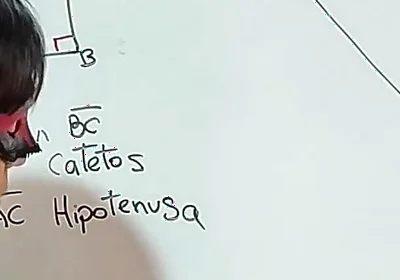 B
∧ B̅C̅
Catetos
A̅C̅ Hipotenusa